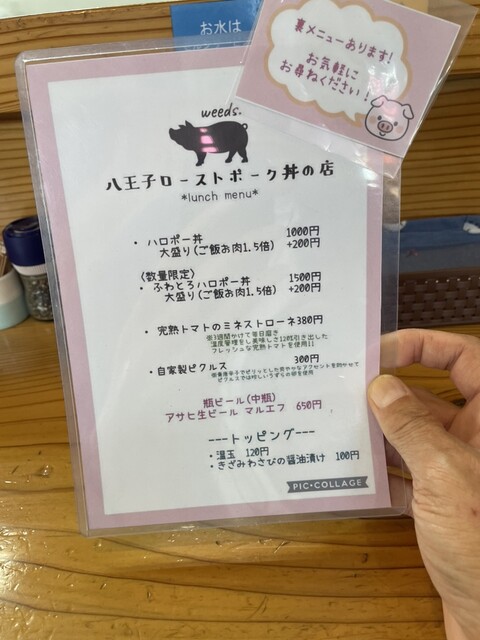 お水は
裏メニューあります!
お気軽に
お尋ねください!
weeds.
八王子ローストポーク丼の店
*lunch menu*
・ハロポー丼 1000円
大盛り(ご飯お肉1.5倍) +200円
〈数量限定〉
・ふわとろハロポー丼 1500円
大盛り(ご飯お肉1.5倍) +200円
・完熟トマトのミネストローネ380円
温度管理をし美味しさ120%引き出した
フレッシュな完熟トマトを使用!!
・自家製ピクルス 300円
瓶ビール(中瓶)
アサヒ生ビール マルエフ 650円
---トッピング---
・温玉 120円
・きざみわさびの醤油漬け 100円
PIC•COLLAGE